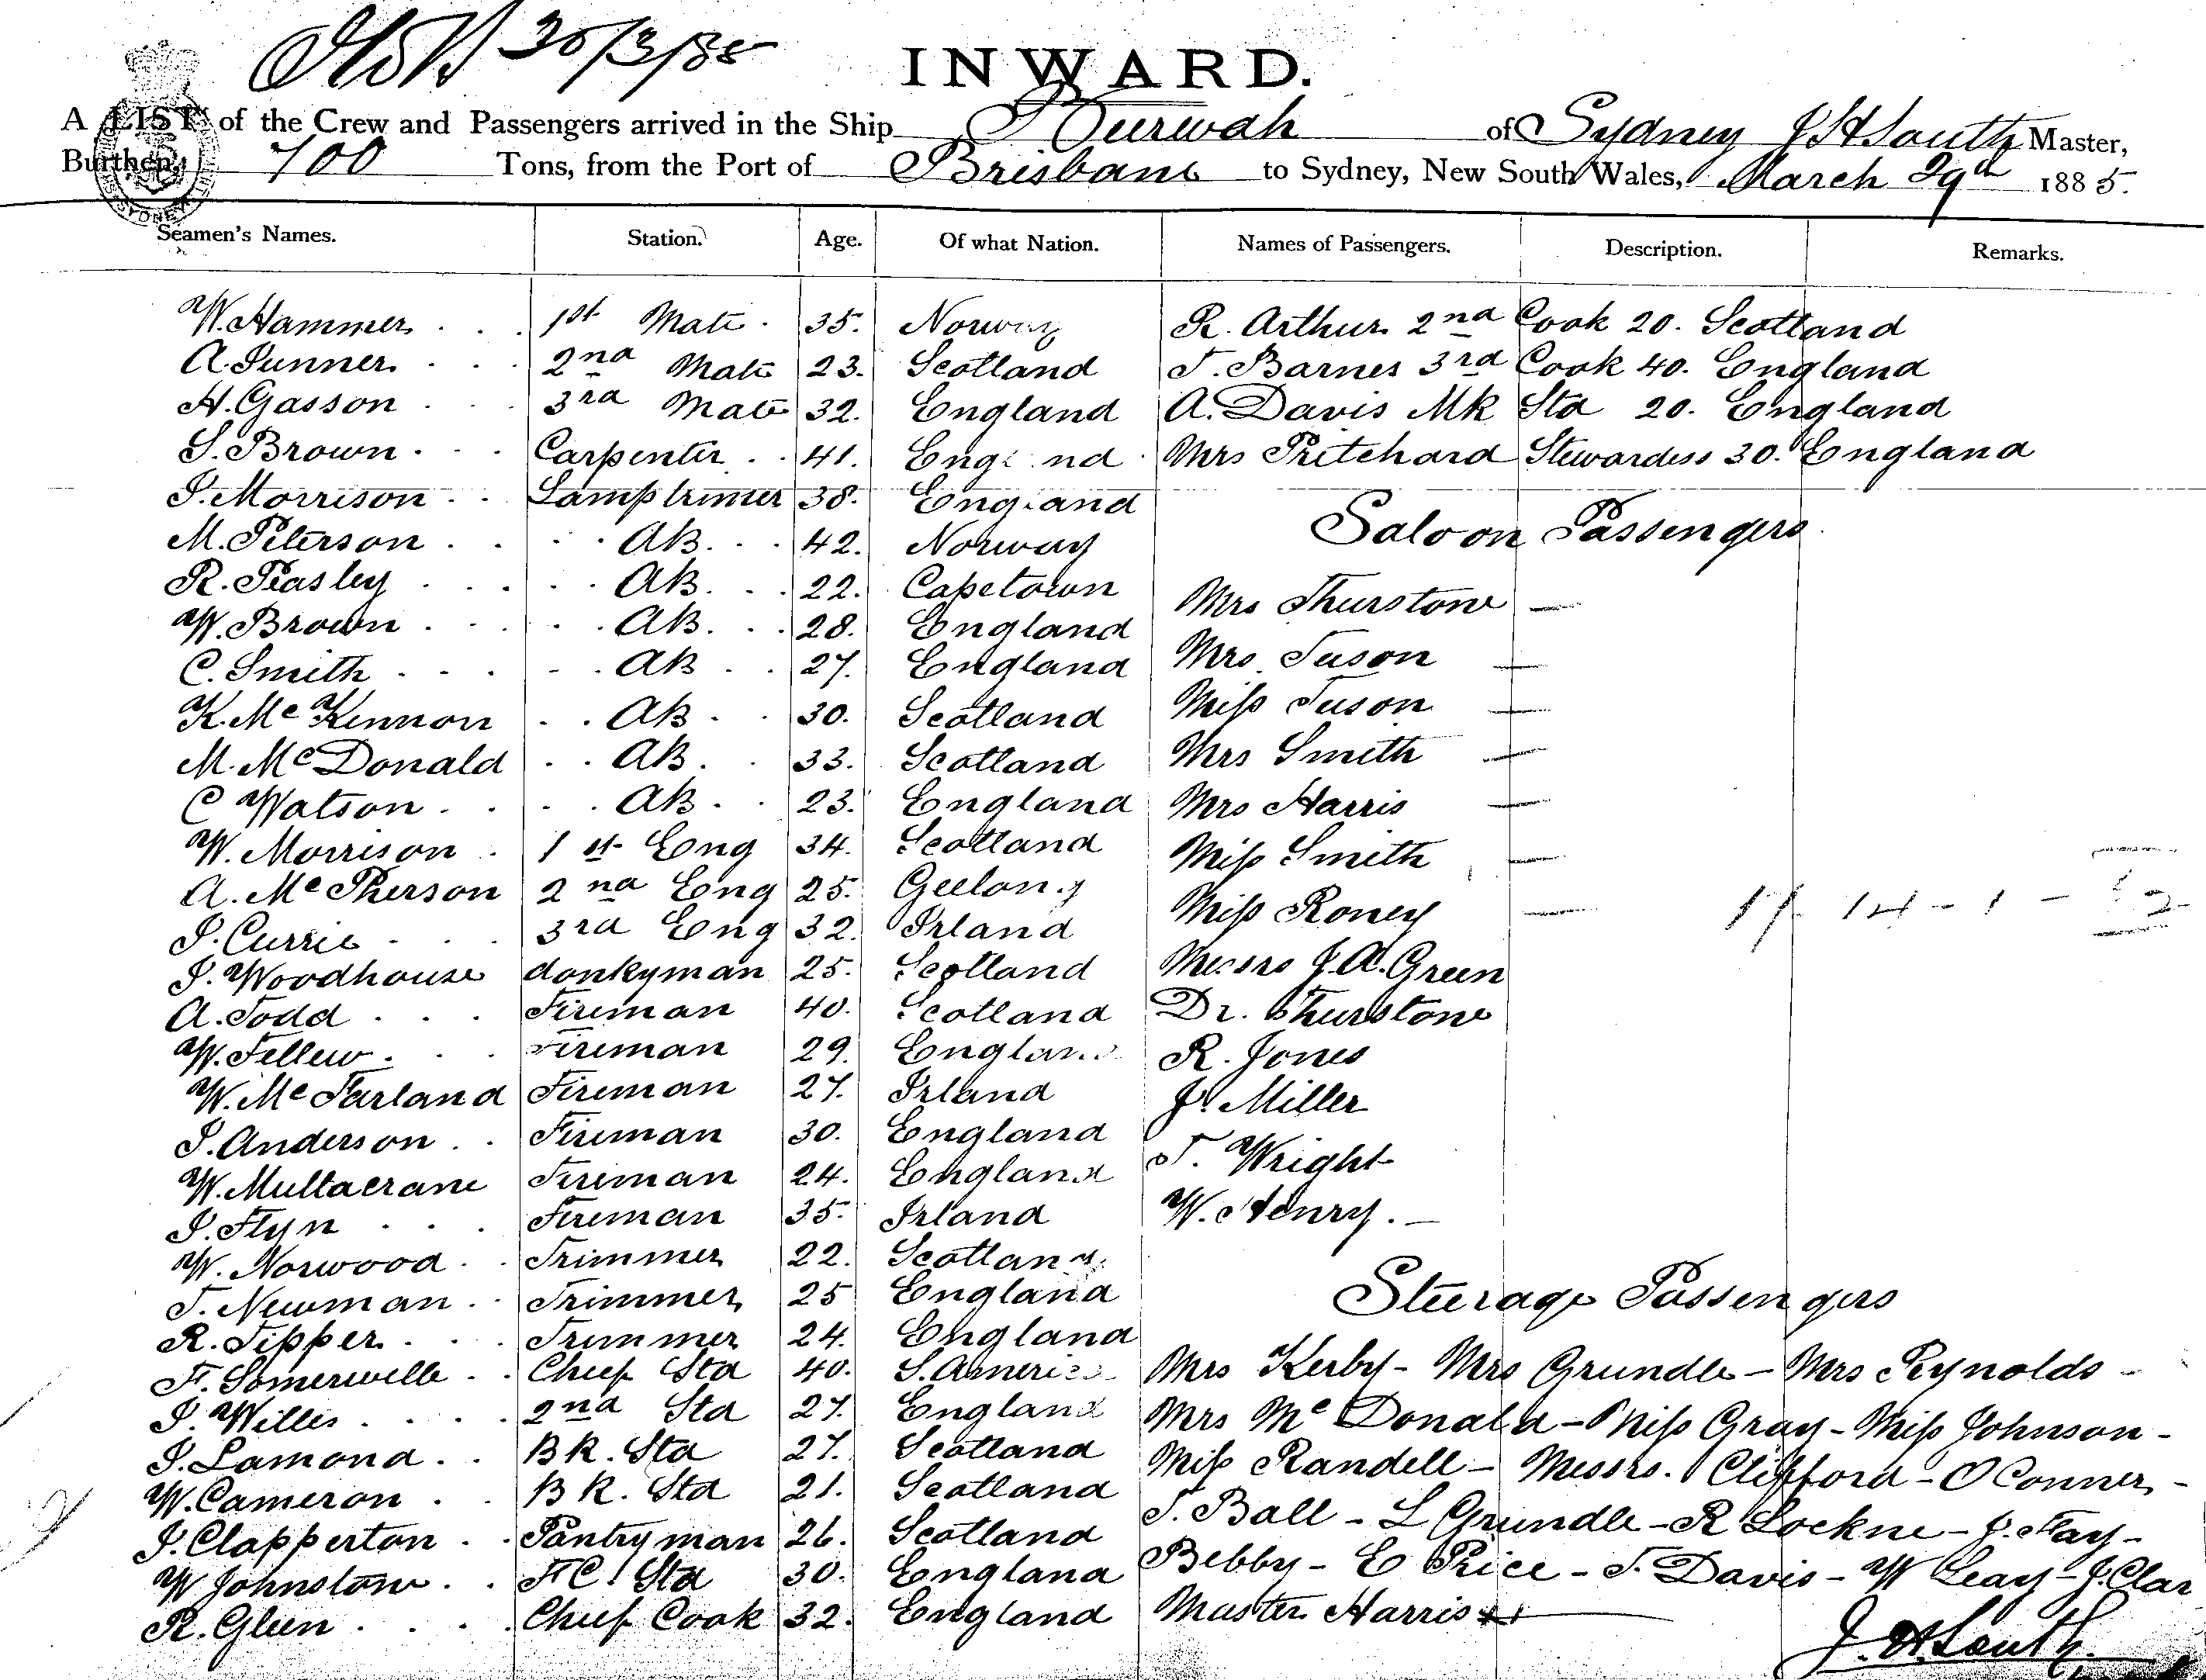 30/3/85
INWARD.
A LIST of the Crew and Passengers arrived in the Ship Burwah of Sydney J H South Master,
Burthen, 700 Tons, from the Port of Brisbane to Sydney, New South Wales, March 29th 1885.
Seamen's Names. Station. Age. Of what Nation. Names of Passengers. Description. Remarks.
W. Hammer 1st Mate 35. Norway R. Arthur 2nd Cook 20. Scotland
A. Junner 2nd Mate 23. Scotland T. Barnes 3rd Cook 40. England
H. Gasson 3rd Mate 32. England A. Davis Mk Std 20. England
S. Brown Carpenter 41. England Mrs Pritchard Stewardess 30. England
J. Morrison Lamptrimer 38. England
Saloon Passengers
M. Peterson AB. 42. Norway
R. Peasley AB. 22. Capetown Mrs Thurstone
W. Brown AB. 28. England
C. Smith AB 27. England Mrs Tuson
K. McKennon AB 30. Scotland Miss Tuson
M. McDonald AB. 33. Scotland Mrs Smith
C Watson AB 23. England Mrs Harris
W. Morrison 1st Eng 34. Scotland Miss Smith
A. McPherson 2nd Eng 25. Geelong Miss Roney
J. Currie 3rd Eng 32. Irland
J. Woodhouse donkyman 25. Scotland Messrs J. A. Green
A. Todd Fireman 40. Scotland Dr. Thurstone
W. Fellew Fireman 29. England R. Jones
W. McFarland Fireman 27. Irland J. Miller
J. Anderson Fireman 30. England T. Wright
W. Multacrane Fireman 24. England
J. Flyn Fireman 35. Irland W. Henry.
W. Norwood Trimmer 22. Scotland
Steerage Passengers
T. Newman Trimmer 25 England
R. Tipper Trimmer 24. England
F. Somerwelle Chief Std 40. S. America Mrs Kerby - Mrs Grundle - Mrs Reynolds -
J. Willis 2nd Std 27. England Mrs McDonald - Miss Gray - Miss Johnson -
J. Lamond BK. Std 27. Scotland Miss Randell - Messrs. Clifford - O Conner -
W. Cameron BK. Std 21. Scotland T. Ball - L Grundle - R Lockne - J. Hay -
J. Clapperton Pantryman 26. Scotland Bebby - E Price - T. Davis - W Leay - J. Clar
W Johnstone F.C. Std 30. England
R. Gleen Chief Cook 32. England Master Harris
J. H. South